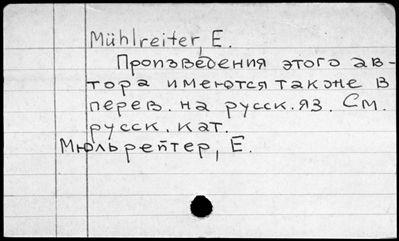 Mühlreiter, E.
Произведения этого ав-
тора имеются также в
перев. на русск. яз. См.
русск. кат.
Мюльрейтер, Е.